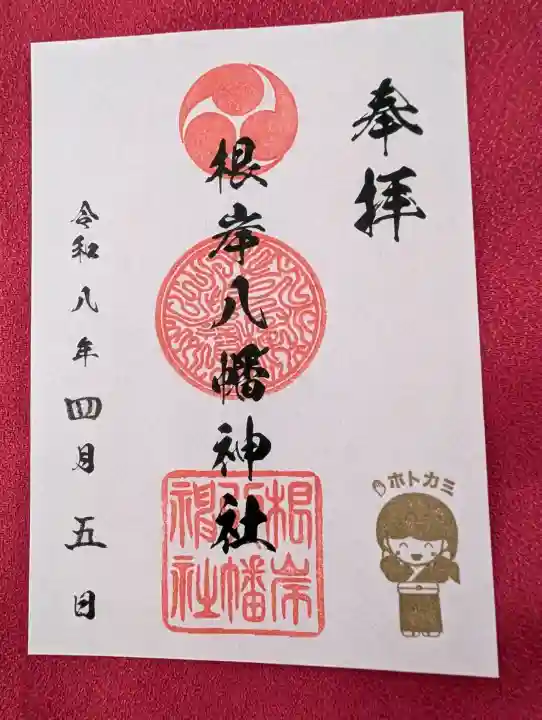 奉拝
根岸八幡神社
令和八年四月五日
根岸
八幡
神社
ホトカミ